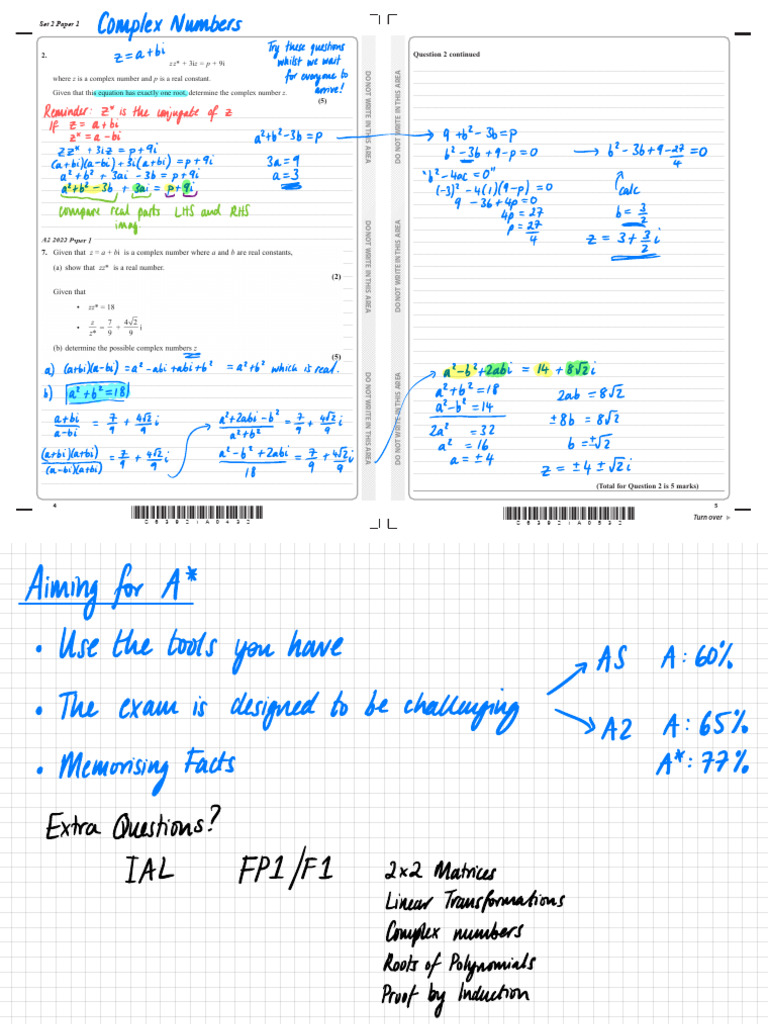 Set 2 Paper 1
Complex Numbers
2.
z = a+bi
zz* + 3iz = p + 9i
Try these questions
whilst we wait
for everyone to
arrive!
where z is a complex number and p is a real constant.
Given that this equation has exactly one root, determine the complex number z.
(5)
Reminder: z* is the conjugate of z
If z = a+bi
z* = a-bi
zz* + 3iz = p+9i
(a+bi)(a-bi)+3i(a+bi) = p+9i
a²+b² + 3ai - 3b = p+9i
a²+b²-3b + 3ai = p+9i
compare real parts LHS and RHS
imag.
a²+b²-3b = p
3a = 9
a = 3
A2 2023 Paper 1
7. Given that z = a + bi is a complex number where a and b are real constants,
(a) show that zz* is a real number.
(2)
Given that
• zz* = 18
• z/z* = 7/9 + 4√2/9 i
(b) determine the possible complex numbers z
(5)
a) (a+bi)(a-bi) = a²-abi+abi+b² = a²+b² which is real.
b) a²+b²=18
a+bi/a-bi = 7/9 + 4√2/9 i
(a+bi)(a+bi)/(a-bi)(a+bi) = 7/9 + 4√2/9 i
a²+2abi-b²/a²+b² = 7/9 + 4√2/9 i
a²-b²+2abi/18 = 7/9 + 4√2/9 i
4
DO NOT WRITE IN THIS AREA
DO NOT WRITE IN THIS AREA
DO NOT WRITE IN THIS AREA
DO NOT WRITE IN THIS AREA
DO NOT WRITE IN THIS AREA
DO NOT WRITE IN THIS AREA
Question 2 continued
9 + b²-3b = p
b²-3b+9-p = 0
"b²-4ac = 0"
(-3)²-4(1)(9-p) = 0
9 - 36+4p = 0
4p = 27
p = 27/4
b²-3b+9-27/4 = 0
calc
b = 3/2
z = 3 + 3/2 i
a²-b²+2abi = 14 + 8√2 i
a²+b² = 18
a²-b² = 14
2a² = 32
a² = 16
a = ±4
2ab = 8√2
±8b = 8√2
b = ±√2
z = ±4 ± √2 i
(Total for Question 2 is 5 marks)
5
Turn over
Aiming for A*
• Use the tools you have
• The exam is designed to be challenging
• Memorising Facts
AS A: 60%
A2 A: 65%
A*: 77%
Extra Questions?
IAL FP1/F1
2x2 Matrices
Linear Transformations
Complex numbers
Roots of Polynomials
Proof by Induction